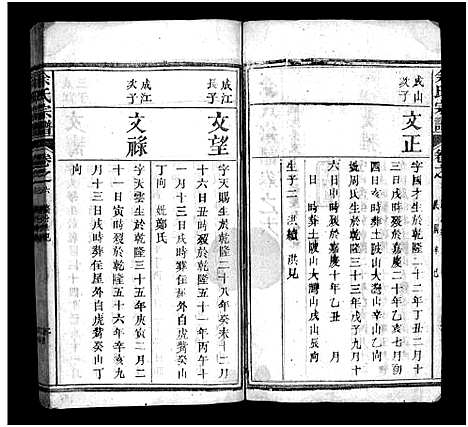 成山
次子
文正
字國才生於乾隆二十二年丁丑二月十
三日戌時歿於嘉慶二十年乙亥七月初
六日寅時葬土陂山大灣戌山辰向
妣周氏生於乾隆三十三年戊子九月十
日 時歿於嘉慶十年乙丑 月
日 時葬土陂山大灣戌山辰向
生子二 洪續 洪見
成江
長子
文望
字天賜生於乾隆二十八年癸未十二月
十六日丑時歿於乾隆五十一年丙午十
月十三日戌時葬住屋外白虎觜癸山
丁向 妣鄭氏
成江
次子
文祿
字天雲生於乾隆三十五年庚寅二月二
十一日寅時歿於乾隆五十六年辛亥九
月十三日戌時葬住屋外白虎觜癸山丁
向
余氏宗譜
卷之六